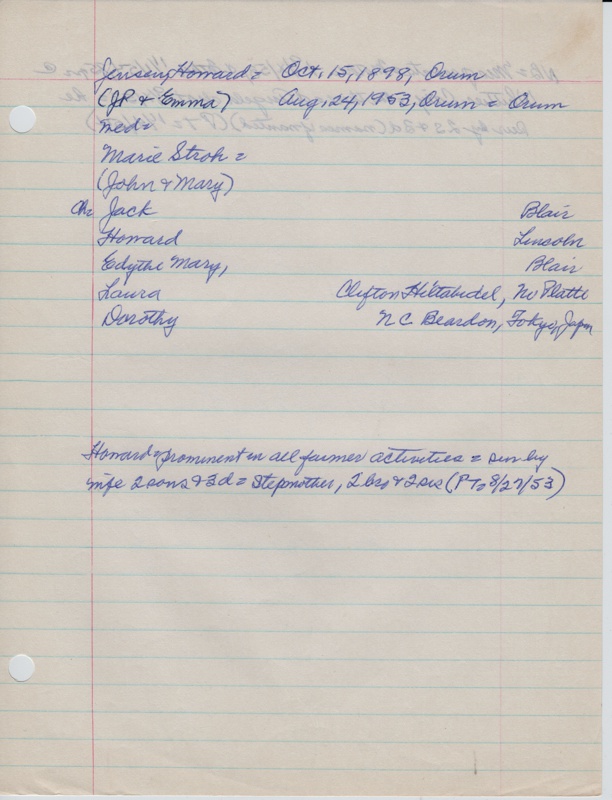 Jensen, Howard = Oct. 15, 1898, Orum
(JP & Emma) Aug. 24, 1953, Orum = Orum
med =
Marie Stroh =
(John & Mary)
Ch: Jack Blair
Howard Lincoln
Edythe Mary, Blair
Laura Clifton Hiltabidel, No Platte
Dorothy N C Beardon, Tokyo, Japn
Howard = prominent in all farmer activities = surv by
wife 2 sons & 3 d = Stepmother, 2 bro & 2 sis (P To 8/27/53)